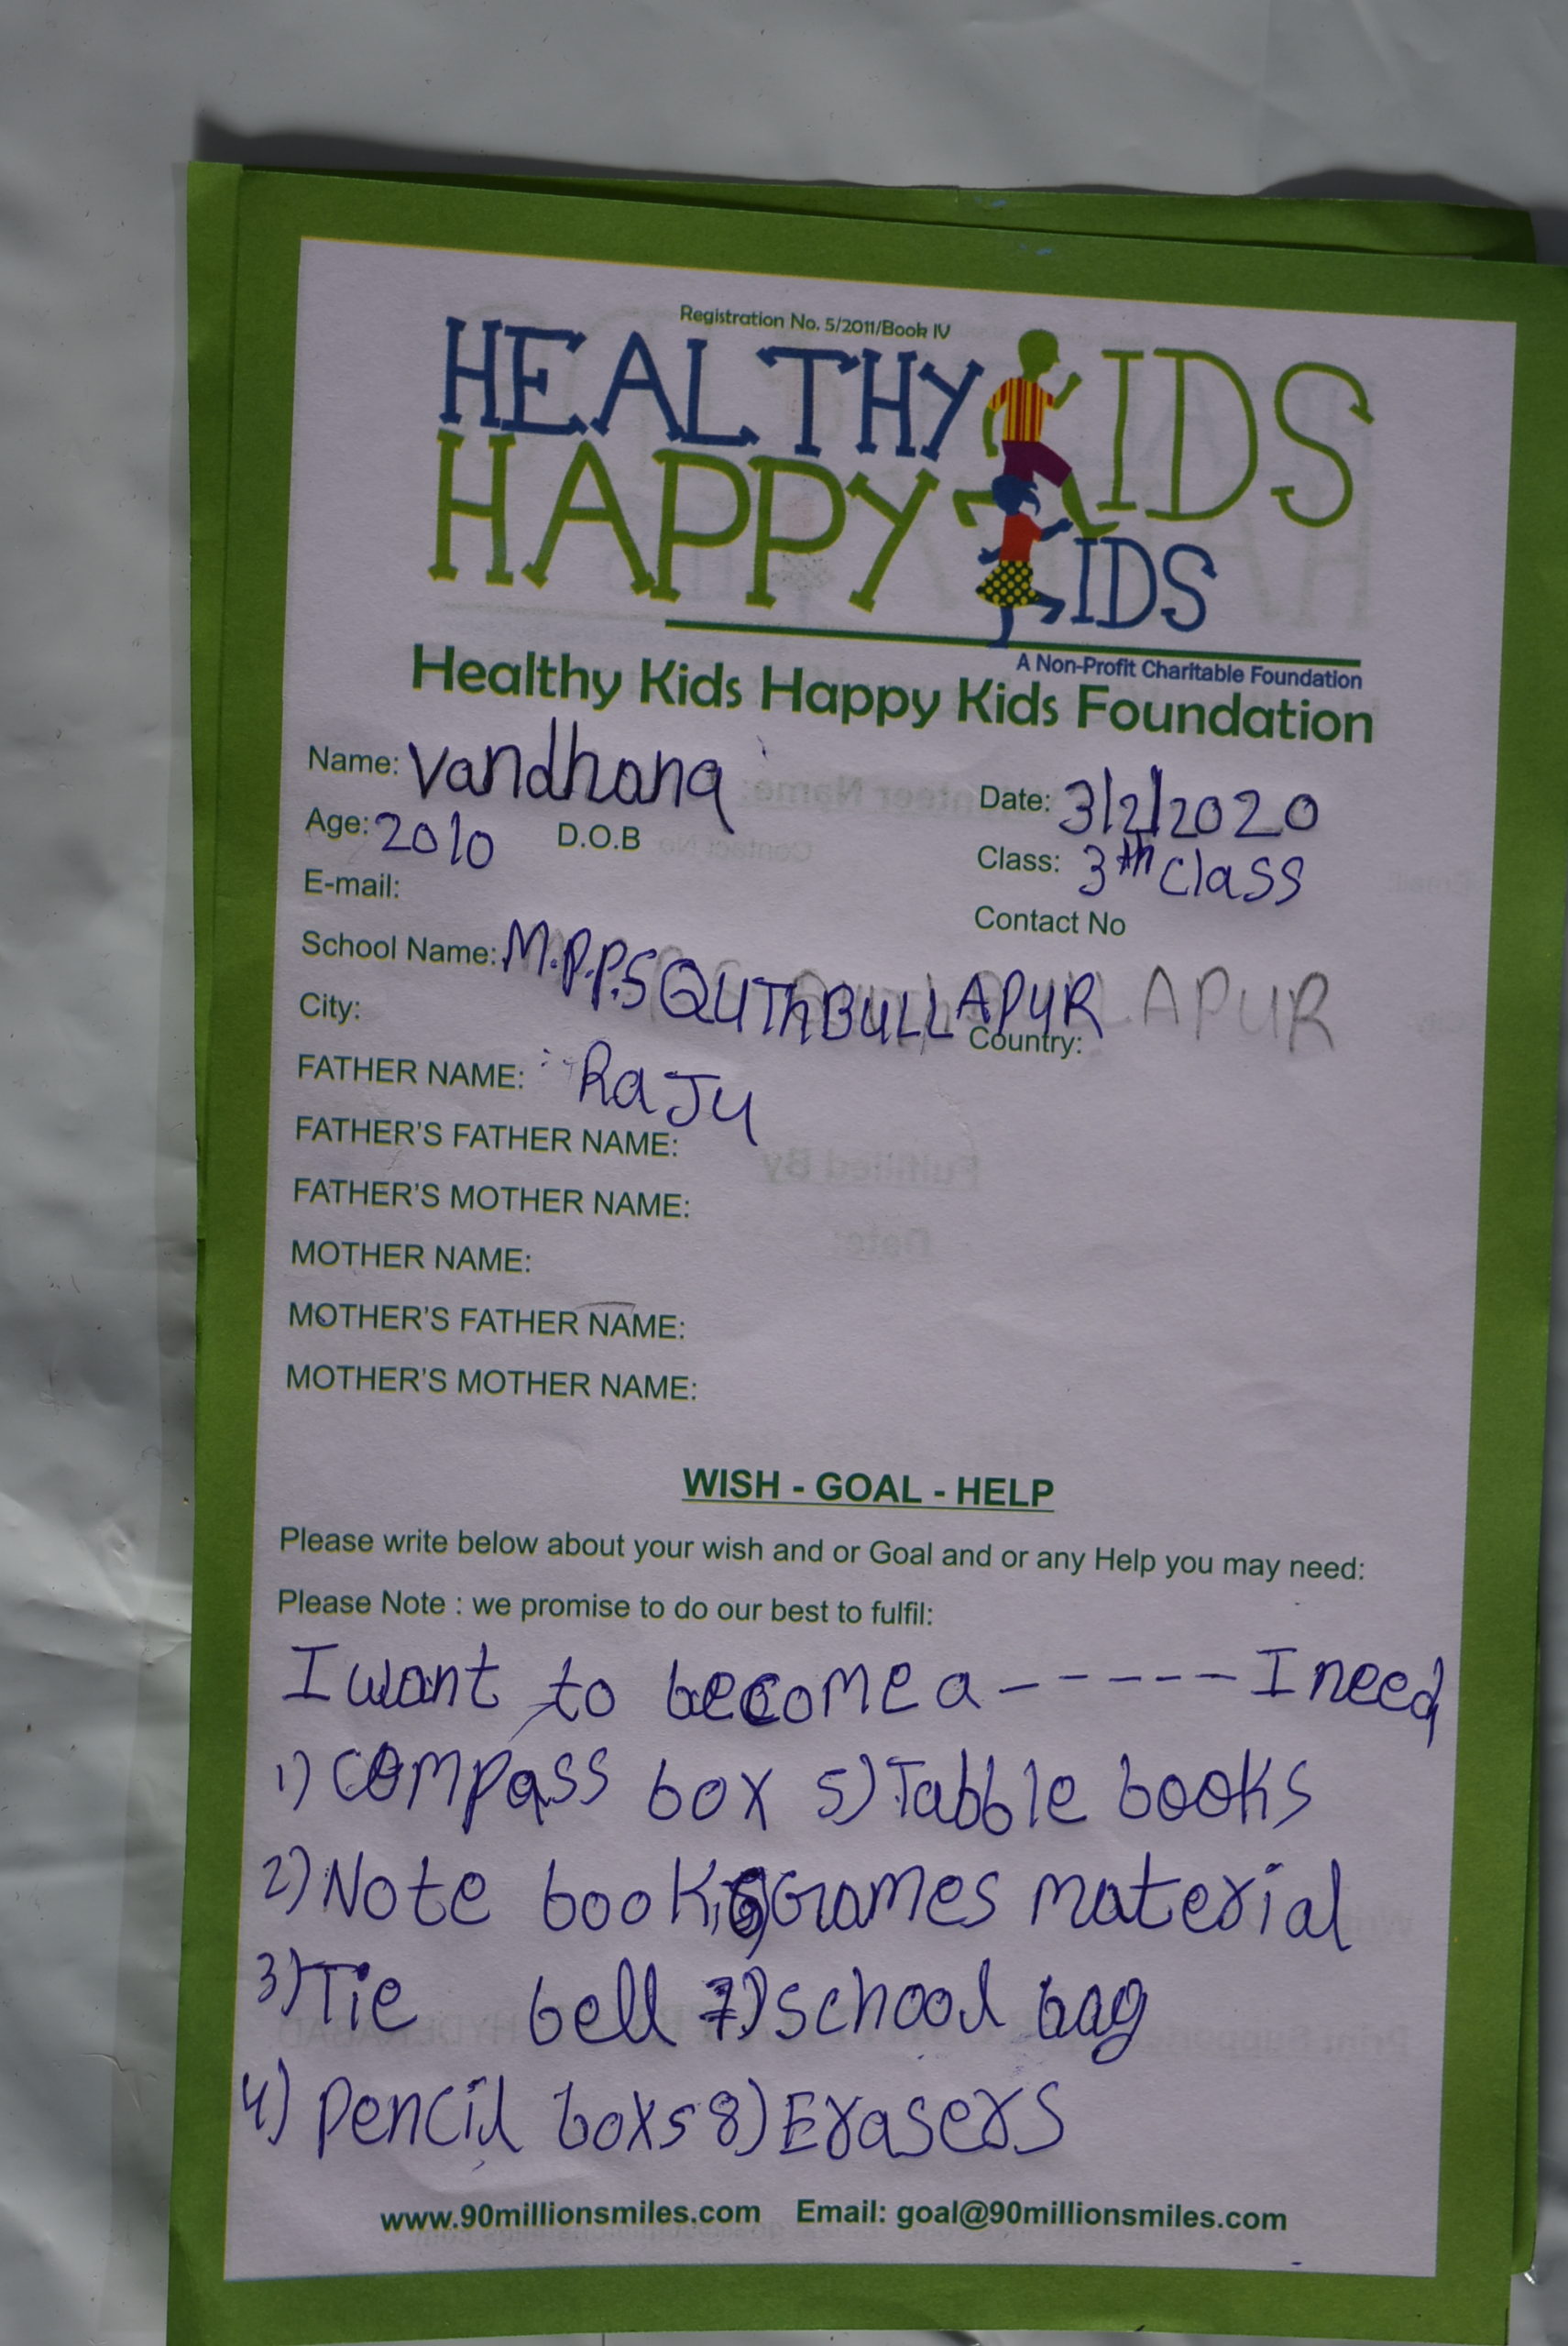 Registration No. 5/2011/Book IV
HEALTHY KIDS
HAPPY KIDS
A Non-Profit Charitable Foundation
Healthy Kids Happy Kids Foundation
Name: Vandhana Date: 3/2/2020
Age: 2010 D.O.B Class: 3th class
E-mail: Contact No
School Name: M.P.P.S QUThBULLAPUR
City: Country:
FATHER NAME: RaJu
FATHER'S FATHER NAME:
FATHER'S MOTHER NAME:
MOTHER NAME:
MOTHER'S FATHER NAME:
MOTHER'S MOTHER NAME:
WISH - GOAL - HELP
Please write below about your wish and or Goal and or any Help you may need:
Please Note : we promise to do our best to fulfil:
I want to become a ------ I need
1) compass box 5) Tabble books
2) Note book, 6) Games material
3) Tie bell 7) school bag
4) pencil boxs 8) Erasers
www.90millionsmiles.com Email: goal@90millionsmiles.com